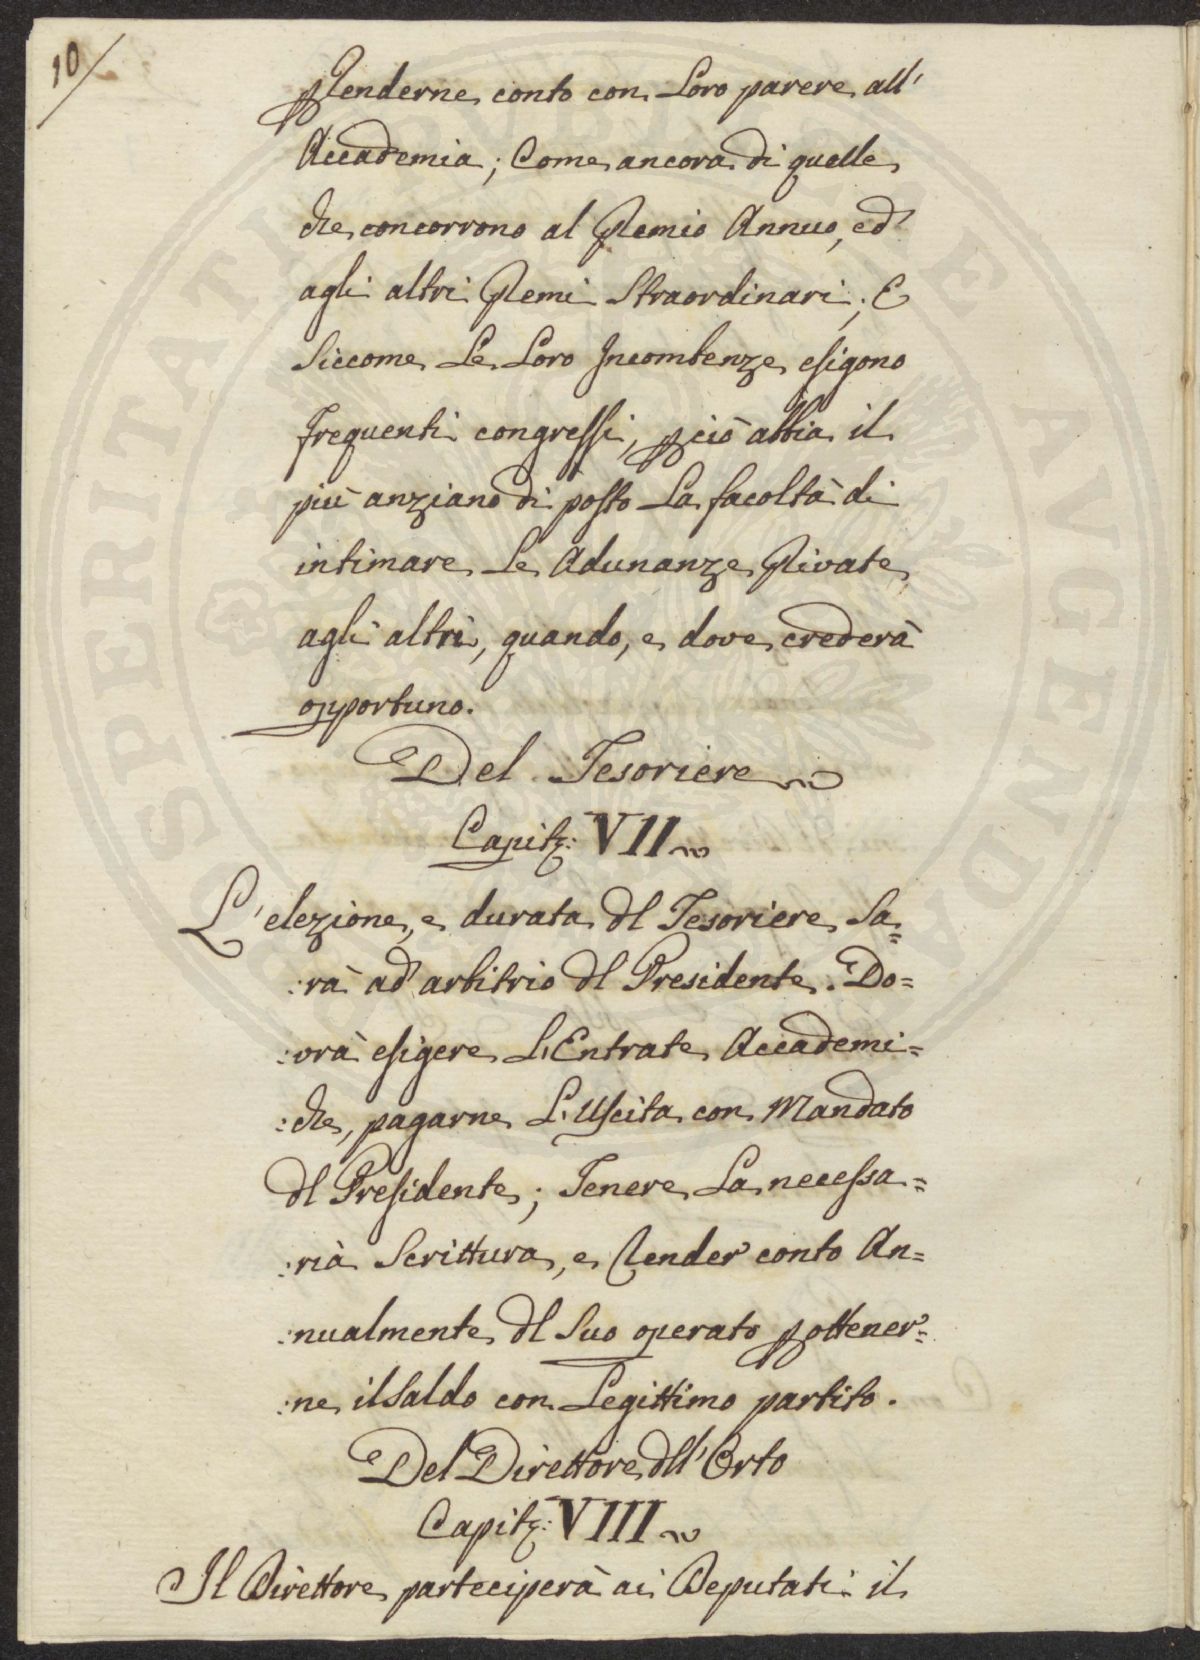 10/
p Renderne conto con Loro parere all'
Accademia; Come ancora di quelle
che concorrono al Premio Annuo, ed
agli altri Premi Straordinari; E
Siccome Le Loro Incombenze esigono
frequenti congressi, pciò abbia il
più anziano di posto La facoltà di
intimare Le Adunanze Private
agli altri, quando, e dove crederà
opportuno.
Del Tesoriere
Capit: VII
L'elezione, e durata dl Tesoriere Sa=
:rà ad arbitrio dl Presidente. Do=
:vrà esigere L'Entrate Accademi=
:che, pagarne L'Uscita con Mandato
dl Presidente; Tenere La necessa=
:ria Scrittura, e Render conto An=
:nualmente dl Suo operato p ottener=
:ne il Saldo con Legittimo partito.
Del Direttore dll' Orto
Capit: VIII
Il Direttore parteciperà ai Deputati il
PROSPERITATI PUBLICAE AUGENDAE